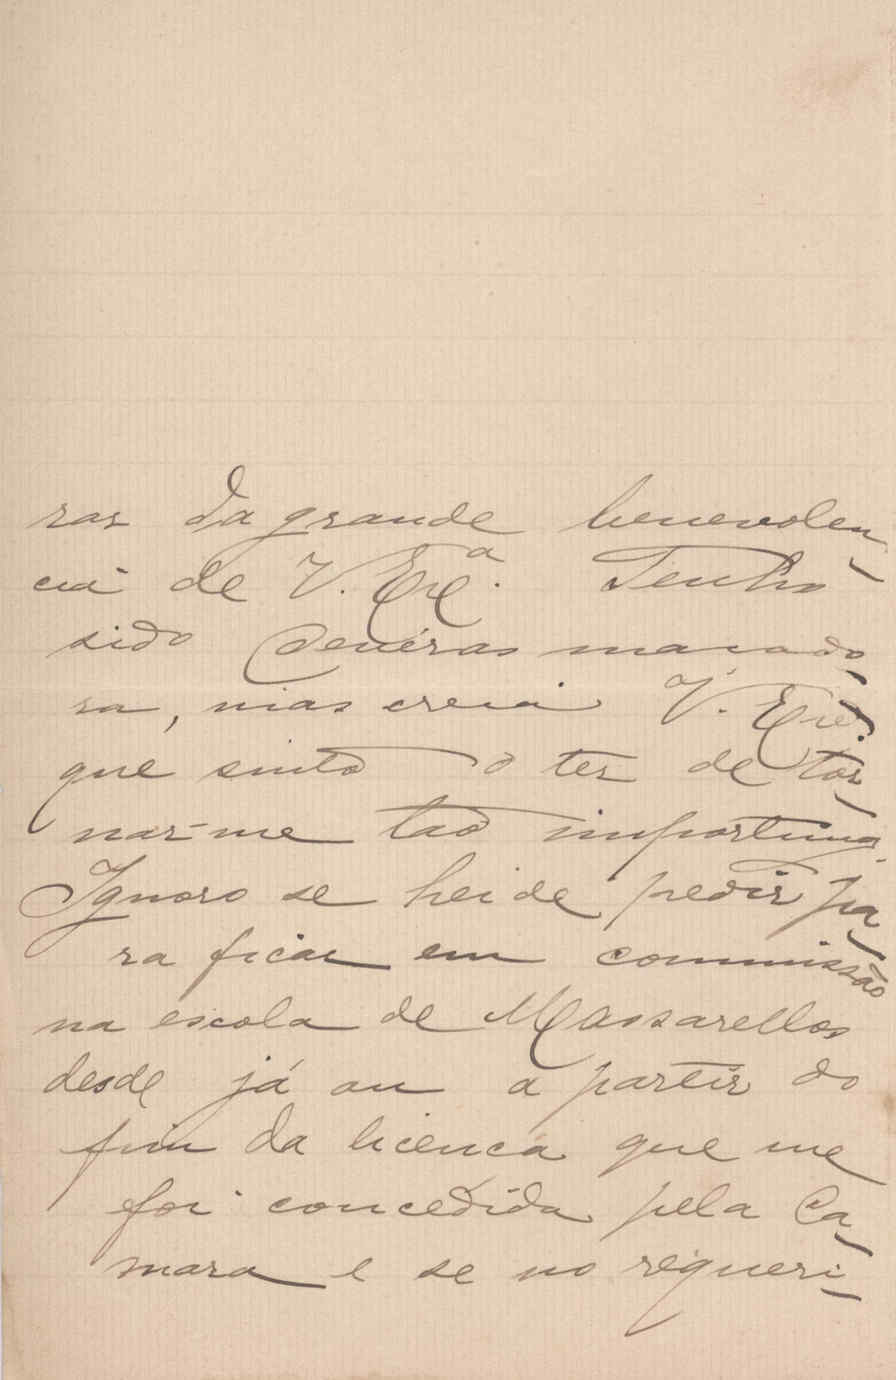 rar da grande benevolen-
cia de V. Exc.ª Tenho
sido deveras massado-
ra, mas creia V. Exc.ª
que sinto o ter de tor-
nar-me tão importuna.
Ignoro se hei de pedir pa-
ra ficar em commissão
na escola de Massarellos
desde já ou a partir do
fim da licença que me
foi concedida pela Ca-
mara e se no requeri-